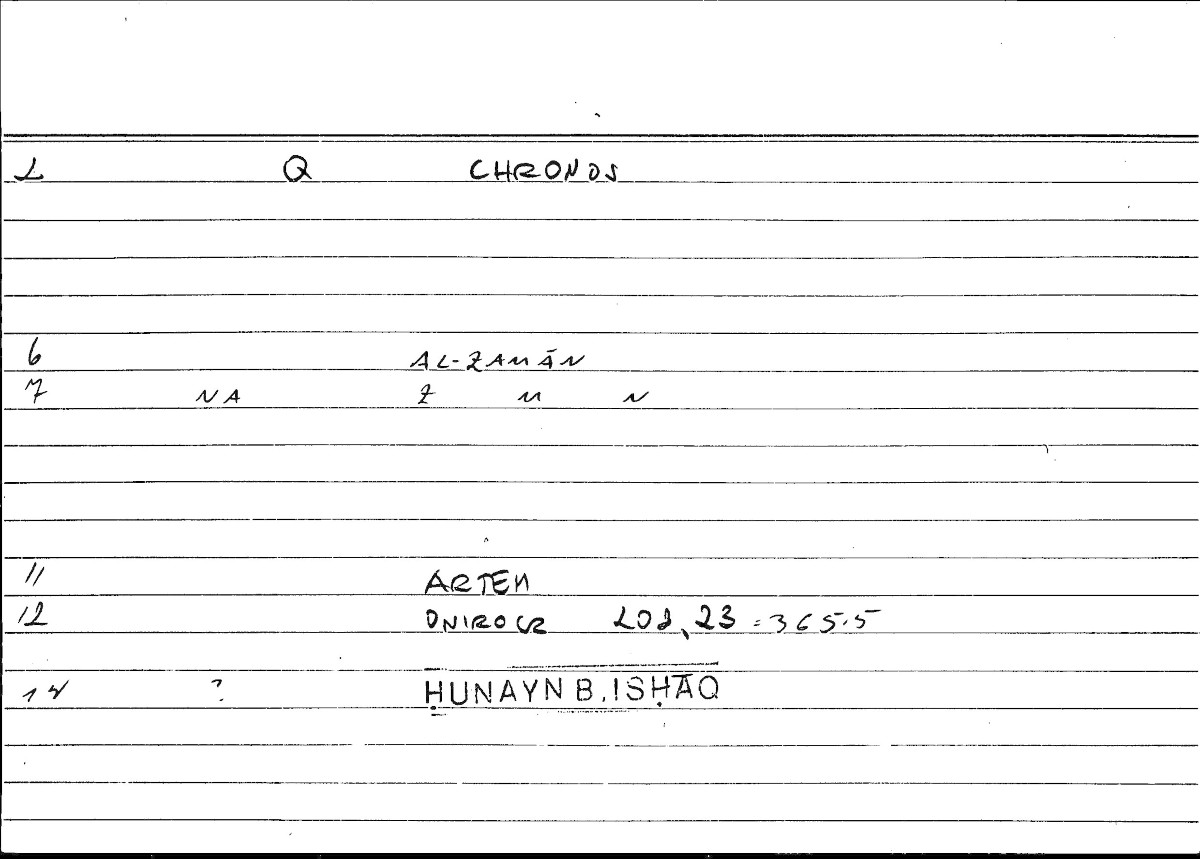 2 Q CHRONOS
6 AL-ZAMĀN
7 NA Z M N
11 ARTEM
12 ONIROCR 202,23 = 365.5
14 ? ḤUNAYN B. ISḤĀQ